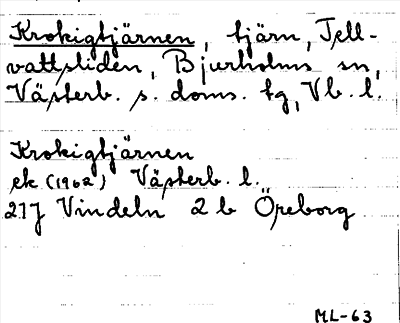 Krokigtjärnen, tjärn, Tell-
vattsliden, Bjurholms sn,
Västerb. s. doms. tg, Vb. l.
Krokigtjärnen
ek. (1962) Västerb. l.
21J Vindeln 2 b Öreborg
ML-63